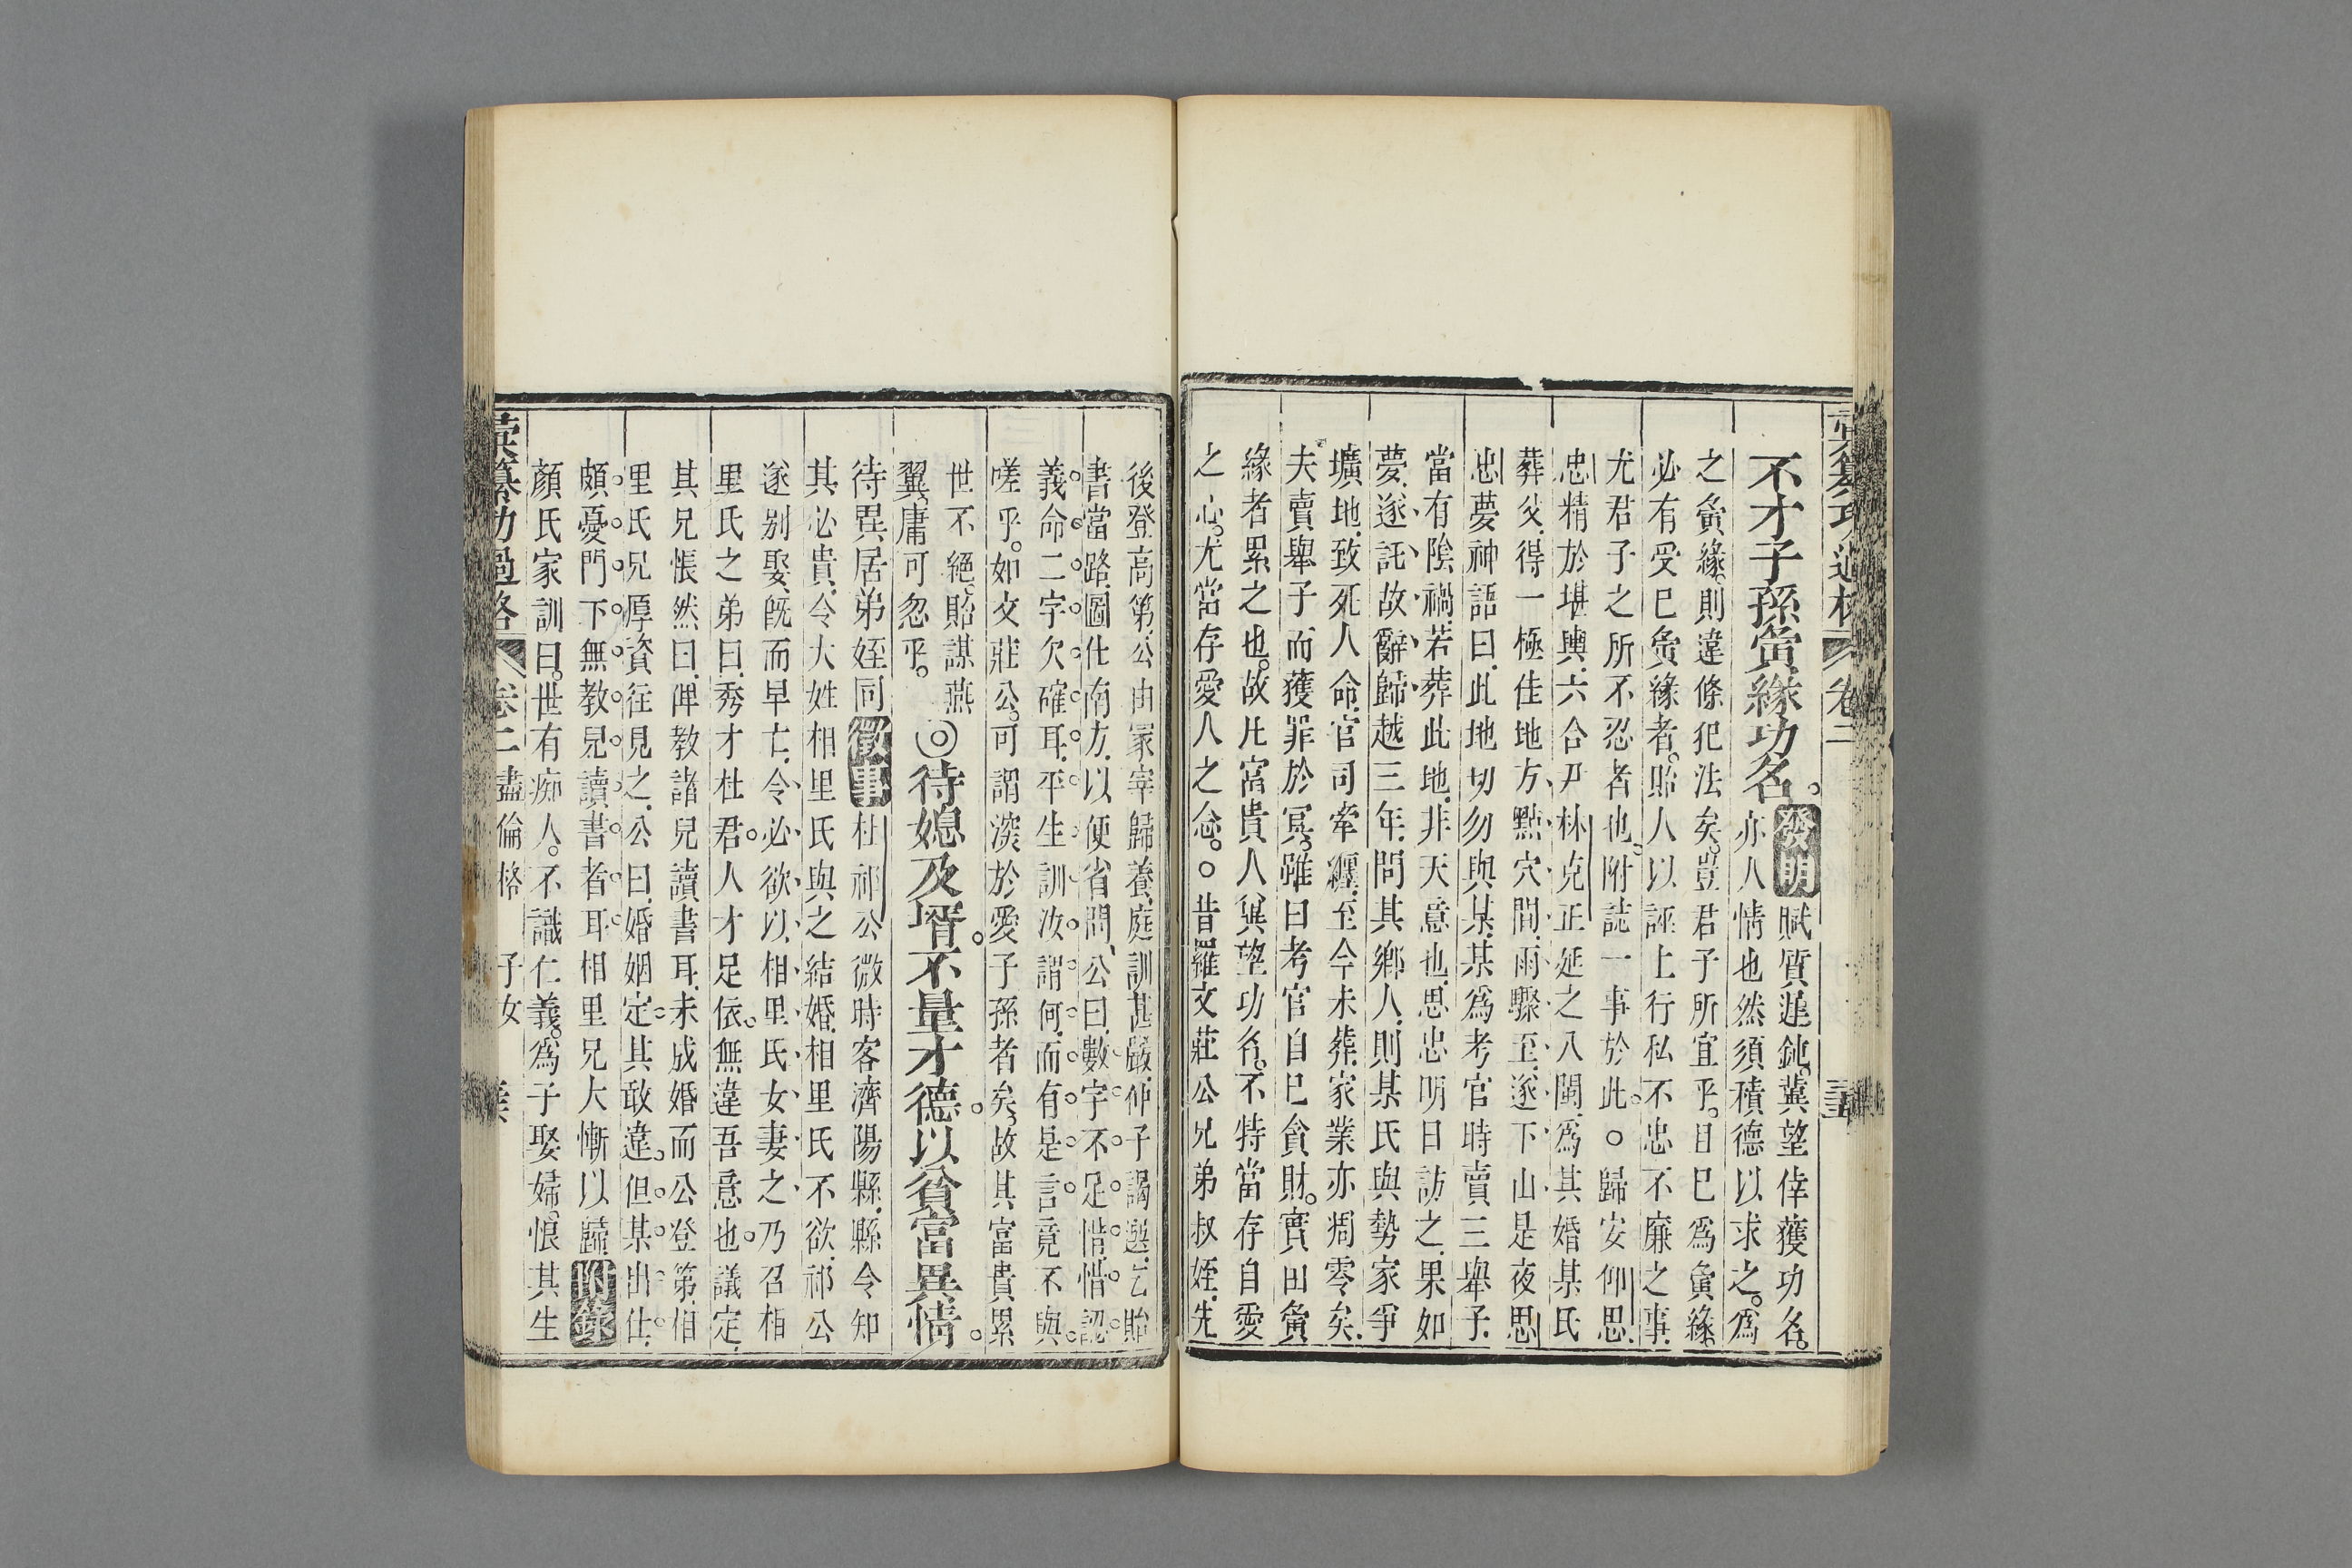 彙纂功過格 卷二
不才子孫夤緣功名。發明賦質遲鈍。冀望倖獲功名。
亦人情也然須積德以求之。爲
之夤緣。則違條犯法矣。豈君子所宜乎。且已爲夤緣。
必有受已夤緣者。貽人以誣上行私不忠不廉之事.
尤君子之所不忍者也。附誌一事於此。○歸安仰思.
忠精於堪輿.六合尹林克正延之入闈.爲其婚某氏
葬父.得一極佳地方.點穴間.雨驟至.遂下山是夜思
忠夢神語曰.此地切勿與某.某爲考官時賣三舉子.
當有陰禍.若葬此地.非天意也.思忠明日訪之.果如
夢.遂託故辭歸越三年.問其鄉人.則某氏與勢家爭
壙地.致死人命.官司牽纏.至今未葬.家業亦凋零矣.
夫賣舉子.而獲罪於冥。雖曰考官自已貪財。實由夤
緣者累之也。故凡富貴人冀望功名。不特當存自愛
之心。尤當存愛人之念。○昔羅文莊公兄弟叔姪.先
後登高第.公由冢宰歸養.庭訓甚嚴.仲子謁選.乞貽
書當路.圖仕南方.以便省問、公曰.數字不足惜.惜認
義命二字欠確耳.平生訓汝謂何.而有是言竟不與
嗟乎。如文莊公。可謂深於愛子孫者矣。故其富貴累
世不絕。貽謀燕
翼。庸可忽乎。
◎待媳及壻。不量才德。以貧富異情。
待異居弟姪同徵事杜祁公微時客濟陽縣.縣令知
其必貴.令大姓相里氏與之結婚.相里氏不欲.祁公
遂别娶.旣而早亡.令必欲以相里氏女妻之.乃召相
里氏之弟曰.秀才杜君。人才足依。無違吾意也。議定.
其兄悵然曰.俾教諸兒讀書耳.未成婚而公登第.相
里氏兄厚資往見之.公曰.婚姻定.其敢違.但某出仕.
頗憂門下無教兒讀書者耳.相里兄大慚以歸.附錄
顏氏家訓曰。世有癡人。不識仁義。爲子娶婦。恨其生
彙纂功過格 卷二 盡倫格 子女